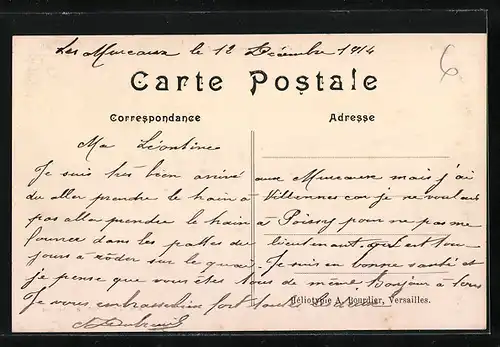 Les Mureaux le 12 Décembre 1914
6
Carte Postale
Correspondance
Adresse
Ma Léontine
Je suis très bien arrivé aux Mureaux mais j'ai
du aller prendre le train à Villennes car je ne voulais
pas aller prendre le train à Poissy pour ne pas me
fourrer dans les pattes du lieutenant qui est tou-
jours à rôder sur le quai. Je suis en bonne santé et
je pense que vous êtes tous de même. Bonjour à tous
Je vous embrasse bien fort
Héliotypie A. Bourdier, Versailles.